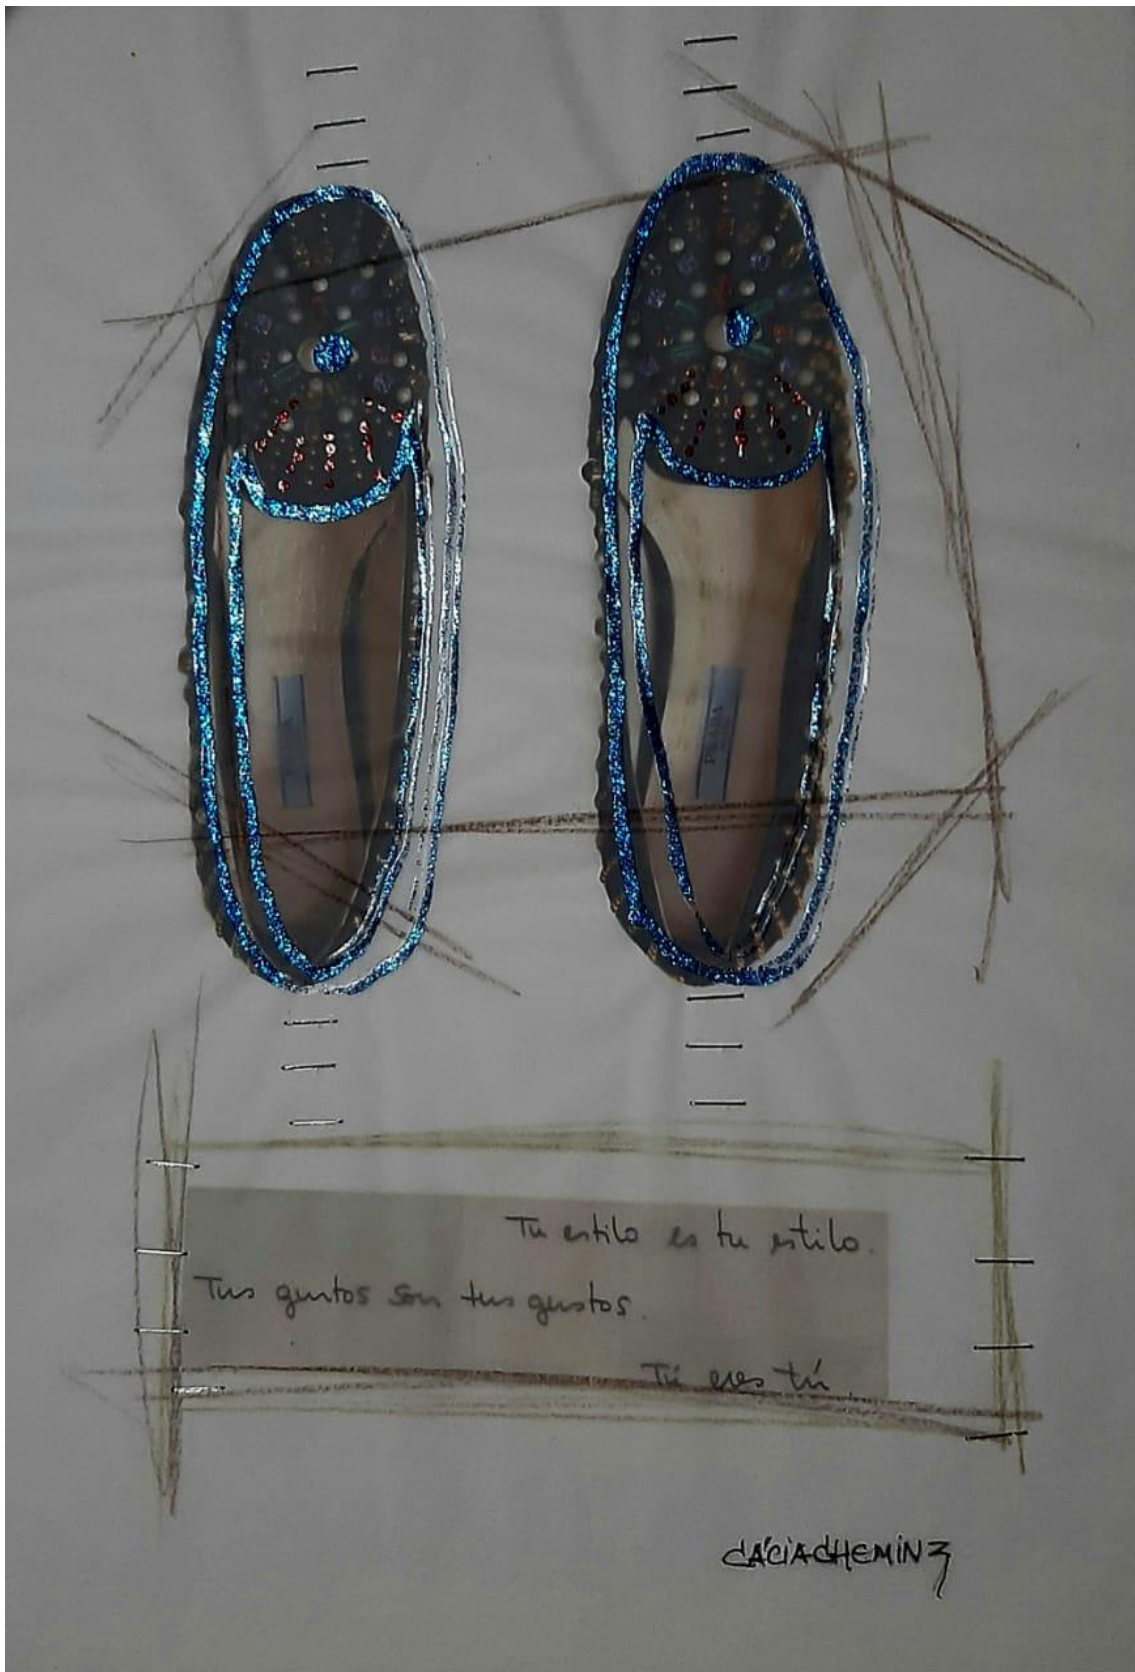 PRADA
Tu estilo es tu estilo.
Tus gustos son tus gustos.
Tú eres tú
CÁCIACHEMIN3